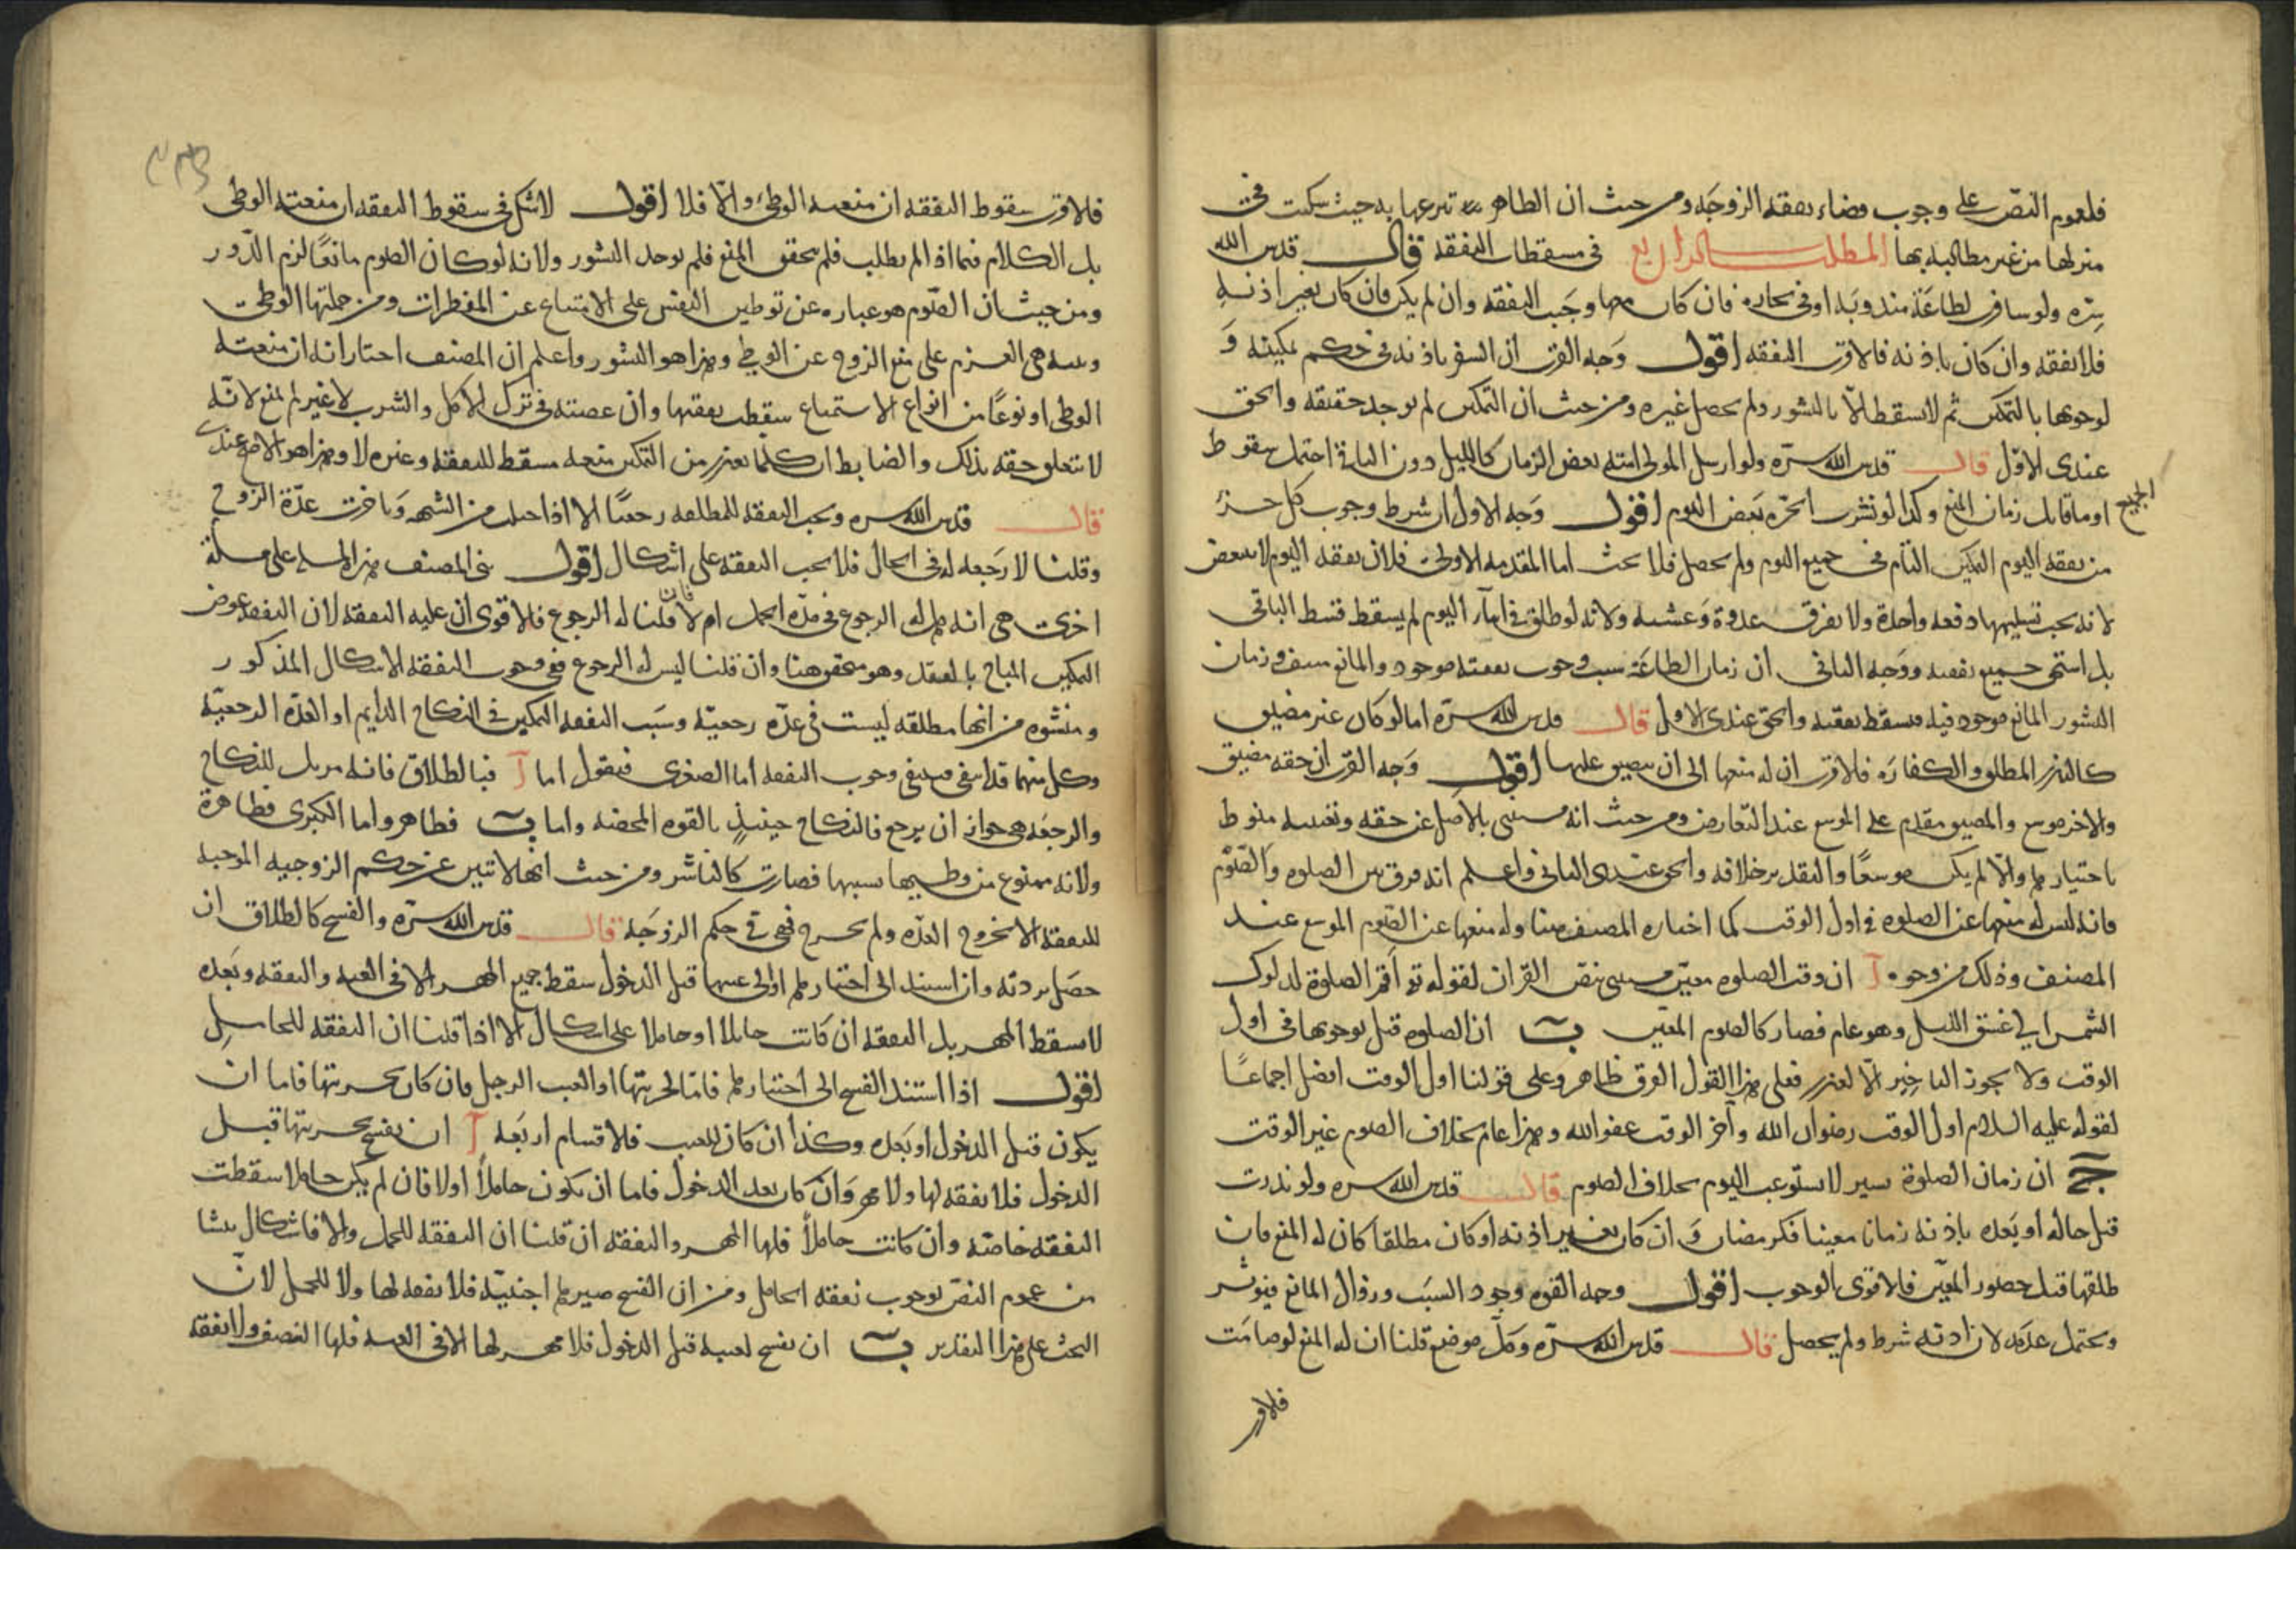 فلعموم النصّ على وجوب قضاء نفقة الزوجَة ومن حيث ان الظاهر تبرعها به حيث سكنت في
منزلها من غير مطالبة بها المطلب الرابع في مسقطات النفقة قال قدس الله
سِرّه ولو سافرت لطاعَة مندوبَة او في تجارة فان كان معها وجَب النفقة وان لم يكن فان كان بغير اذنه
فلا نفقة وان كان باذنه فالاقرب النفقة اقول وَجه القرب ان السفر باذنه في حكم تمكينه وَ
لوجوبها بالتمكين ثم لا يسقط الّا بالنشوز ولم يحصل غيره ومن حيث ان التمكين لم يوجد حقيقة والحق
عندى الاوّل قال قدس الله سرّه ولو ارسل المولى امته بعض الزمان كالليل دون الباقى احتمل سقوط
الجميع
او ما قابل زمان المنع وكذا لو نشزت الحرّة بَعض اليوم اقول وَجه الاول ان شرط وجوب كل جزء
من نفقة اليوم التمكين التام في جميع اليوم ولم يحصل فلا يجب اما المقدمة الاولى فلان نفقة اليوم لا يتبعض
لانه يجب تسليمها دفعة واحدة ولا يفرق غدوة وَعشية ولانه لو طلق في اثناء اليوم لم يسقط قسط الباقى
بل استحق جميع نفقته ووَجه الثانى ان زمان الطاعَة سبب وجوب نفقته موجود والمانع منتف وزمان
النشوز المانع موجود فيه فيسقط نفقته والحق عندى الاول قال قدس الله سرّه اما لو كان غير مضيق
كالنذر المطلق والكفارَة فالاقرب ان له منعها الى ان يتضيق عليها اقول وَجه القرب ان حقه مضيق
والاخر موسع والمضيق مقدم على الموسع عند التعارض ومن حيث انه مستثنى بالاصل عن حقه وتعيينه منوط
باختيارها والّا لم يكن موسعًا والتقدير خلافه والحق عندى الثانى واعلم انه فرق بين الصلوة والصّوم
فانه ليس له منعها عن الصلوة في اول الوقت كما اختاره المصنف هنا وله منعها عن الصوم الموسع عند
المصنف وذلك من وجوه آ ان وقت الصلوة معيّن مستثنى بنص القران لقوله تع اقم الصلوة لدلوك
الشمس الى غسق الليل وهو عام فصار كالصوم المعيّن ب ان الصلوة قيل بوجوبها في اول
الوقت ولا يجوز التاخير الّا لعذر فعلى هذا القول الفرق ظاهر وعلى قولنا اول الوقت افضل اجماعًا
لقوله عليه السلام اول الوقت رضوان الله وآخر الوقت عفو الله وهذا عام بخلاف الصوم غير الوقت
ج ان زمان الصلوة يسير لا يستوعب اليوم بخلاف الصوم قال قدس الله سره ولو نذرت
قبل حاله او بَعده باذنه زمانا معينا فكرمضان وَ ان كان بغير اذنه او كان مطلقا كان له المنع فان
طلقها قبل حضور المعيّن فالاقوى الوجوب اقول وجه القوة وجود السبَب وزوال المانع فيؤثر
ويحتمل عدَمه لان اذنه شرط ولم يحصل قال قدس الله سرّه وكلّ موضع قلنا ان له المنع لو صامَت
فلاقر
فلاقرب سقوط النفقة ان منعته الوطئ والّا فلا اقول لا شك في سقوط النفقة ان منعته الوطى
بل الكلام فيما اذا لم يطلب فلم يتحقق المنع فلم يوجد النشوز ولانه لو كان الصوم مانعًا لزم الدّور
ومن حيث ان الصّوم هو عبارة عن توطين النفس على الامتناع عن المفطرات ومن جملتها الوطى
ونيته هى العزم على منع الزوج عن الوطى وهذا هو النشوز واعلم ان المصنف اختار انه ان منعته
الوطى او نوعًا من انواع الاستمتاع سقطت نفقتها وان عصته في ترك الاكل والشرب لا غير لم يمنع لانّه
لا تتعلق حقه بذلك والضابط ان كلما يعذر من التمكين منعه مسقط للنفقة وغيره لا وهذا هو الاصح عندى
قال قدس الله سره ويجب النفقة للمطلقة رجعيًا الا اذا حبلت من الشبهة وَتاخرت عدّة الزوج
وقلنا لا رَجعة له في الحال فلا يجب النفقة على اشكال اقول بنى المصنف هذا المسئلة على مسئلة
اخرى هى انه هل له الرجوع في مدّة الحمل ام لا فان قلنا له الرجوع فالاقوى ان عليه النفقة لان النفقة عوض
التمكين المباح بالعقد وهو متحقق هنا وان قلنا ليس له الرجوع ففى وجوب النفقة الاشكال المذكور
ومنشؤه من انها مطلقة ليست في عدّة رجعيّة وسَبب النفقة التمكين في النكاح الدايم او العدّة الرجعيّة
وكل منهما قد انتفى فينتفى وجوب النفقة اما الصغرى فنقول اما آ فبالطلاق فانه مزيل للنكاح
والرجعَة هى جواز ان يرجع فالنكاح حينئذٍ بالقوة المحضة واما ب فظاهر واما الكبرى فظاهرة
ولانه ممنوع من وطيها بسببها فصارت كالناشز ومن حيث انها لا تبين عن حكم الزوجية الموجبة
للنفقة الا بخروج العدّة ولم يخرج فهى في حكم الزوجَة قال قدس الله سرّه والفسخ كالطلاق ان
حصَل بردته وان استند الى اختيارها او الى عيبها قبل الدخول سقط جميع المهر الا في العنة والنفقة وبَعده
لا يسقط المهر بل النفقة ان كانت حايلا او حاملا على اشكال الا اذا قلنا ان النفقة للحامل
اقول اذا استند الفسخ الى اختيارها فامّا لحريتها او لعيب الرجل فان كان بحريتها فاما ان
يكون قبل الدخول او بَعده وكذا ان كان للعيب فلاقسام اربَعة آ ان يفسخ بحريتها قبل
الدخول فلا نفقة لها ولا مهر وَان كان بعد الدخول فاما ان يكون حاملاً او لا فان لم يكن حاملا سقطت
النفقة خاصّة وان كانت حاملاً فلها المهر والنفقة ان قلنا ان النفقة للحمل والا فاشكال ينشا
من عموم النصّ بوجوب نفقة الحامل ومن ان الفسخ صيرها اجنبيّة فلا نفقة لها ولا للحمل لانّ
البحث على هذا التقدير ب ان يفسخ لعيبه قبل الدخول فلا مهر لها الا في العنة فلها النصف ولا نفقة